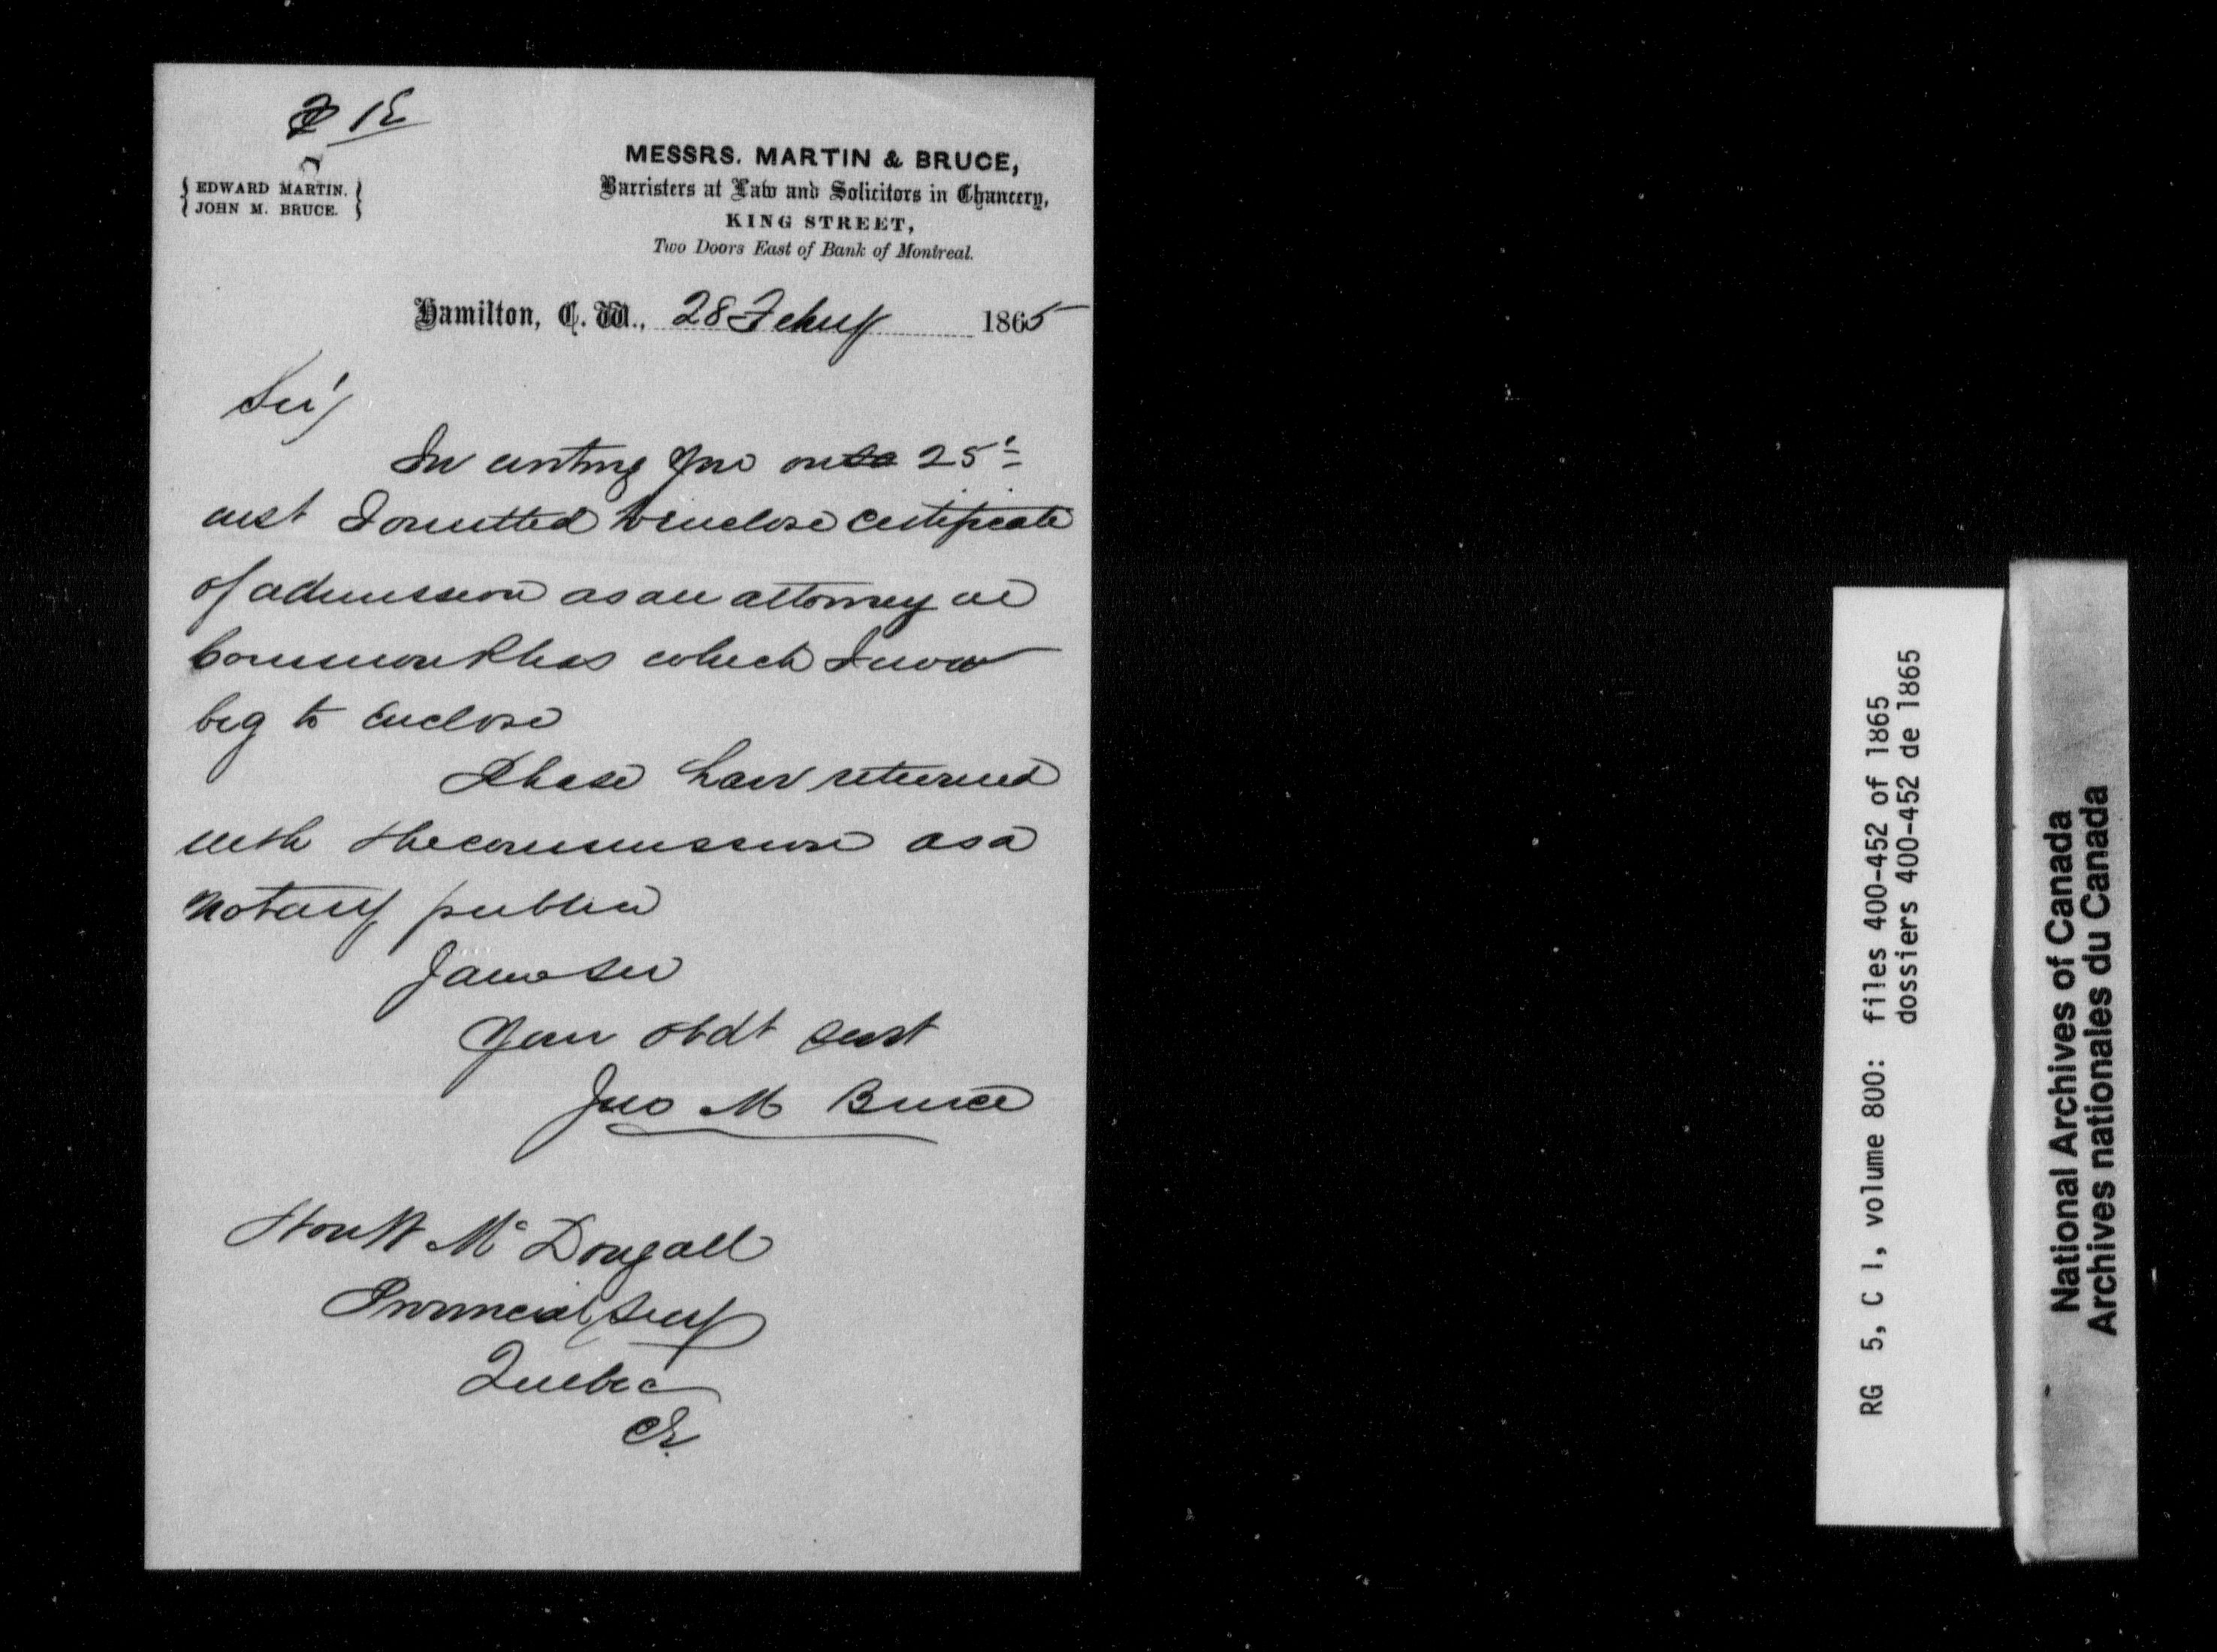 EDWARD MARTIN.
JOHN M. BRUCE.
MESSRS. MARTIN & BRUCE,
Barristers at Law and Solicitors in Chancery,
KING STREET,
Two Doors East of Bank of Montreal.
Hamilton, C. W., 28 Feby 1865
Sir,
In writing you on 25th
inst I omitted to enclose certificate
of admission as an attorney in
Common Pleas which I now
beg to Enclose
Please have returned
with the commission as a
Notary public
I am Sir
Your obdt servt
Jno M Bruce
Hon W McDougall
Provincial Secy
Quebec
CE
RG 5, C 1, volume 800: files 400-452 of 1865
dossiers 400-452 de 1865
National Archives of Canada
Archives nationales du Canada